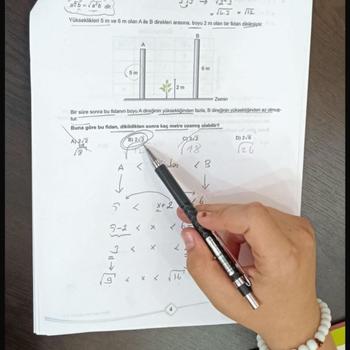 a√b = √a²b
= √6·2 = √12
Yükseklikleri 5 m ve 6 m olan A ile B direkleri arasına, boyu 2 m olan bir fidan dikilmiştir.
A
B
5 m
6 m
2 m
Zemin
Bir süre sonra bu fidanın boyu A direğinin yüksekliğinden fazla, B direğinin yüksekliğinden az olmuştur.
Buna göre bu fidan, dikildikten sonra kaç metre uzamış olabilir?
A) 2√2 B) 2√3 C) 3√2 D) 2√6
√8 √18
A < < B
5 < x+2 6
5-2 < x <
3 < x <
√9 < x < √16
4